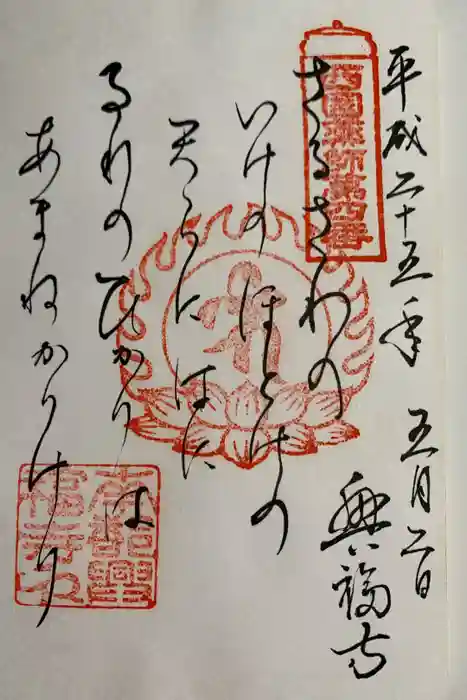 平成二十五年 五月二日
興福寺
西國薬師第四番
さるさわの
いけのほとりの
天らにはに
るりのひかりは
あまねかりけり